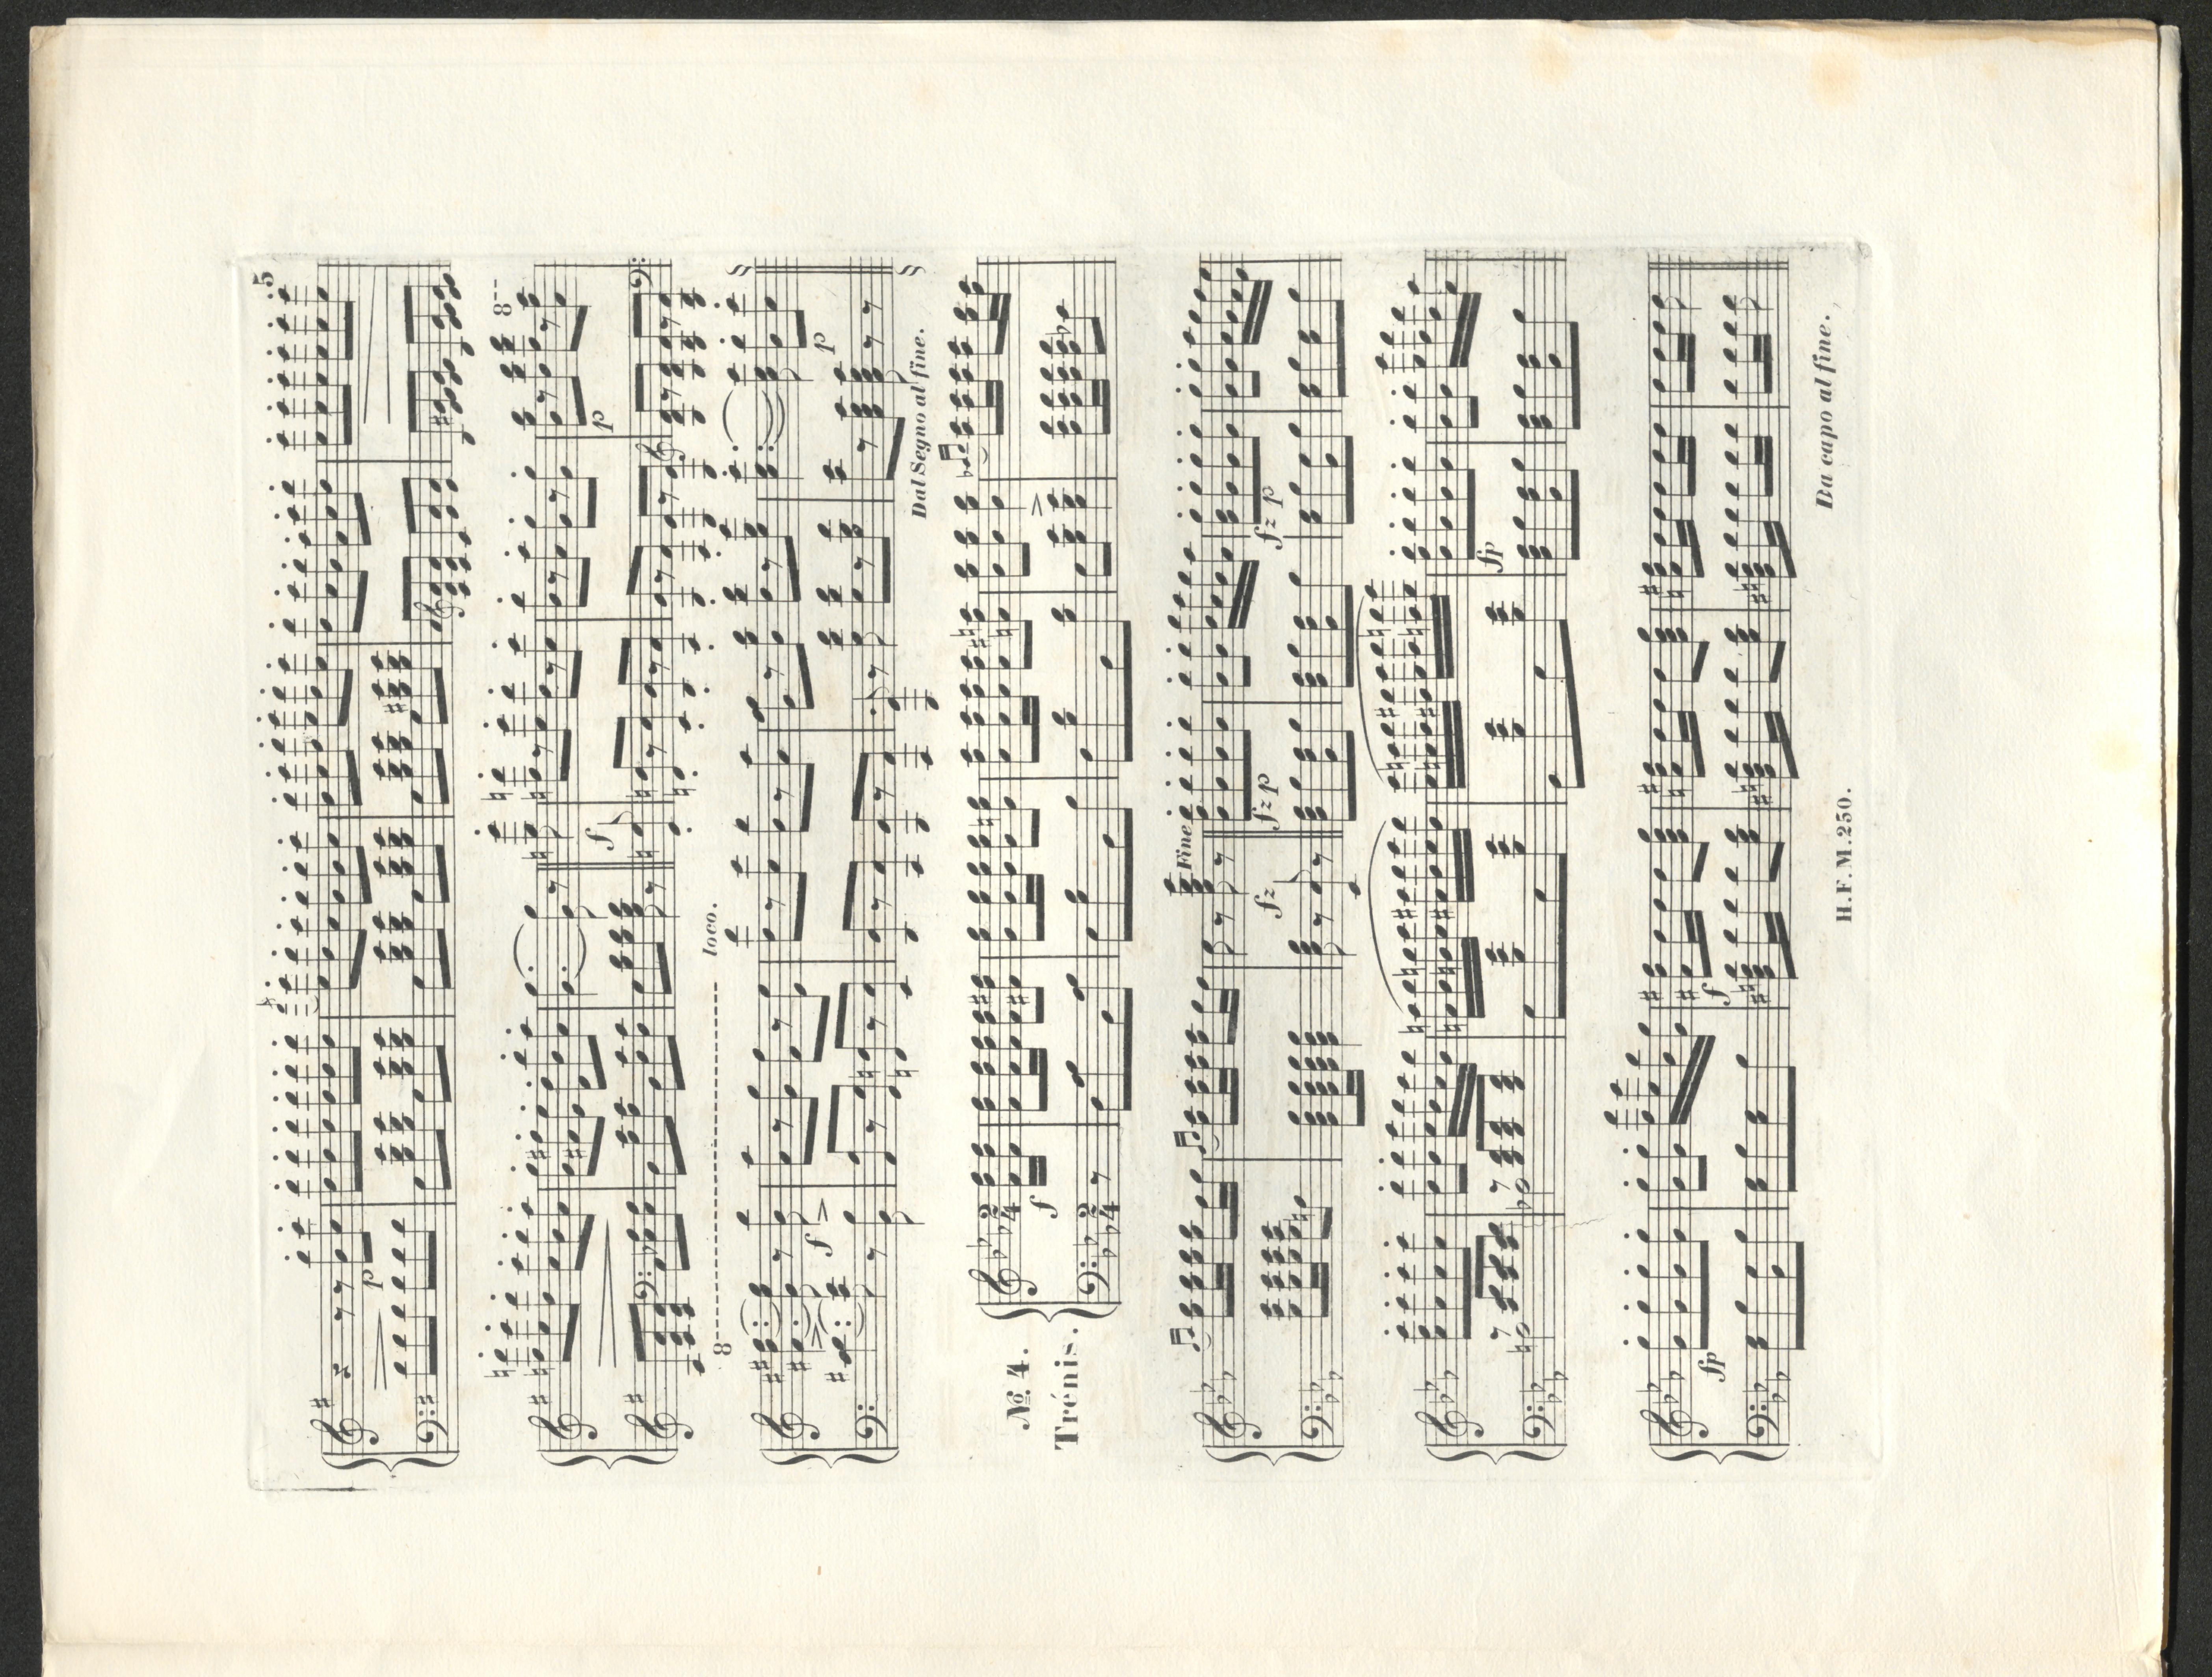 5
p
8
p
f
8 loco.
f
p
Dal Segno al fine.
No. 4.
Trénis.
2 4
f
2 4
Fine
fz
fz p
fz p
fp
fp
f
Da capo al fine.
H.F.M.250.